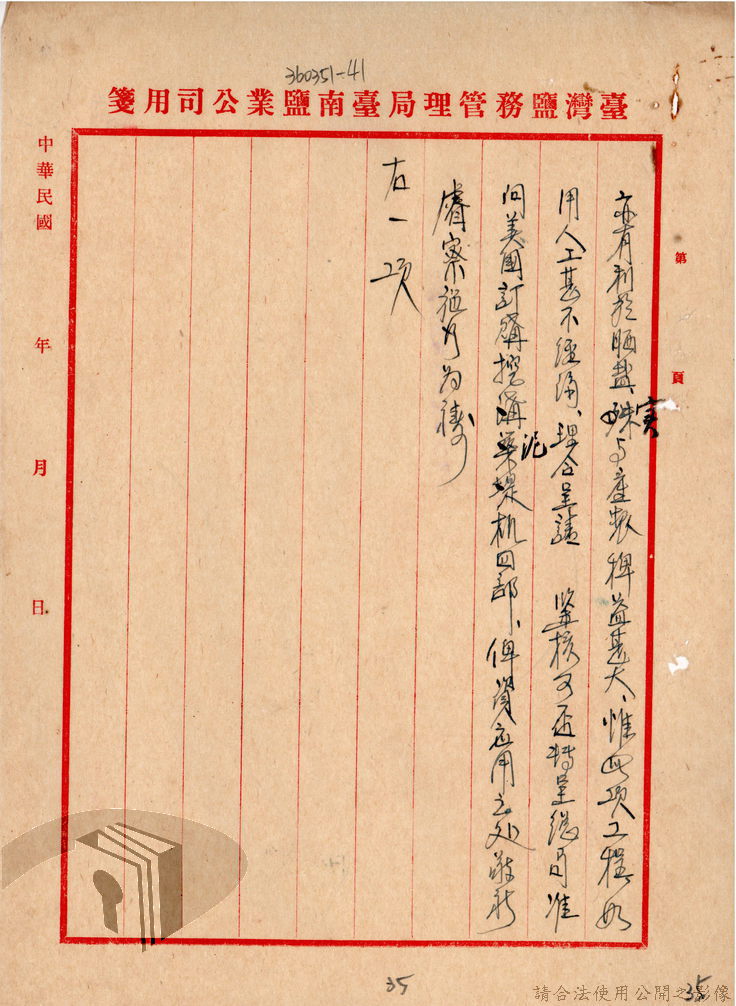 360351-41
臺灣鹽務管理局臺南鹽業公司用箋
第 頁
亦有利於晒盐、實與產製裨益甚大、惟此項工程如
用人工甚不經濟、理合呈請 鑒核可否轉呈總局准
向美國訂購挖溝泥築堤机四部、俾資应用之处敬祈
睿察施行為禱
右一項
中華民國 年 月 日
35
35
請合法使用公開之影像